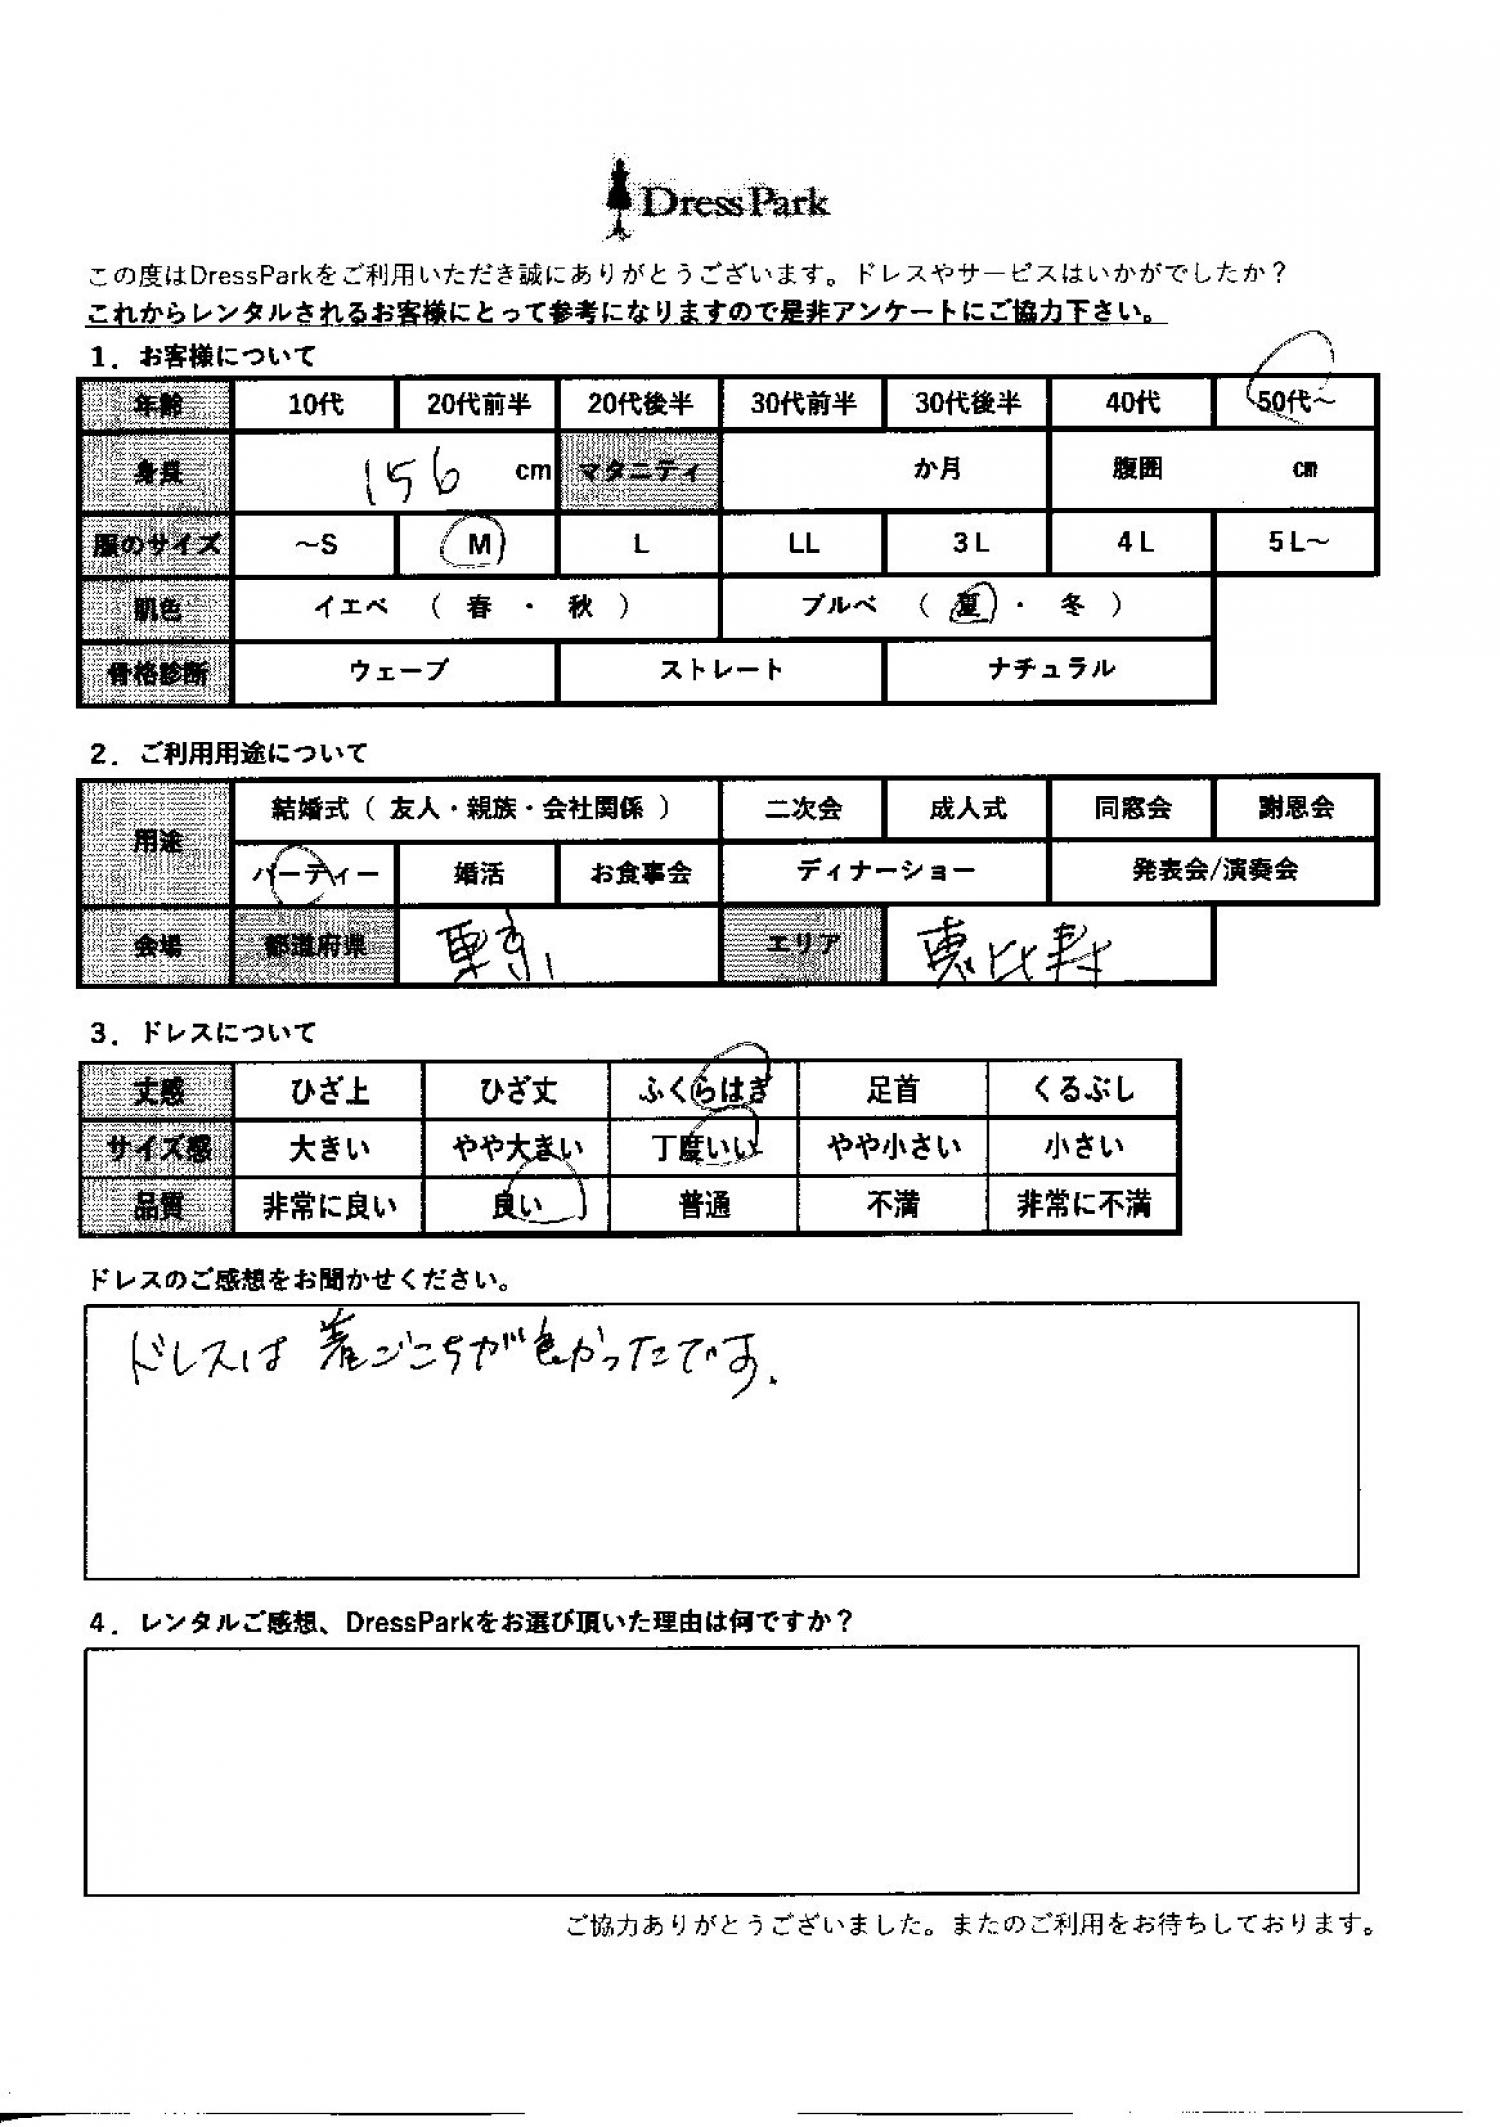 DressPark
この度はDressParkをご利用いただき誠にありがとうございます。ドレスやサービスはいかがでしたか？
これからレンタルされるお客様にとって参考になりますので是非アンケートにご協力下さい。
1．お客様について
年齢 10代 20代前半 20代後半 30代前半 30代後半 40代 50代～
身長 156 cm マタニティ か月 腹囲 cm
服のサイズ ～S M L LL 3L 4L 5L～
肌色 イエベ （ 春 ・ 秋 ） ブルベ （ 夏 ・ 冬 ）
骨格診断 ウェーブ ストレート ナチュラル
2．ご利用用途について
用途 結婚式（ 友人・親族・会社関係 ） 二次会 成人式 同窓会 謝恩会
パーティー 婚活 お食事会 ディナーショー 発表会/演奏会
会場 都道府県 東京 エリア 恵比寿
3．ドレスについて
丈感 ひざ上 ひざ丈 ふくらはぎ 足首 くるぶし
サイズ感 大きい やや大きい 丁度いい やや小さい 小さい
品質 非常に良い 良い 普通 不満 非常に不満
ドレスのご感想をお聞かせください。
ドレスは着ごこちが良かったです.
4．レンタルご感想、DressParkをお選び頂いた理由は何ですか？
ご協力ありがとうございました。またのご利用をお待ちしております。